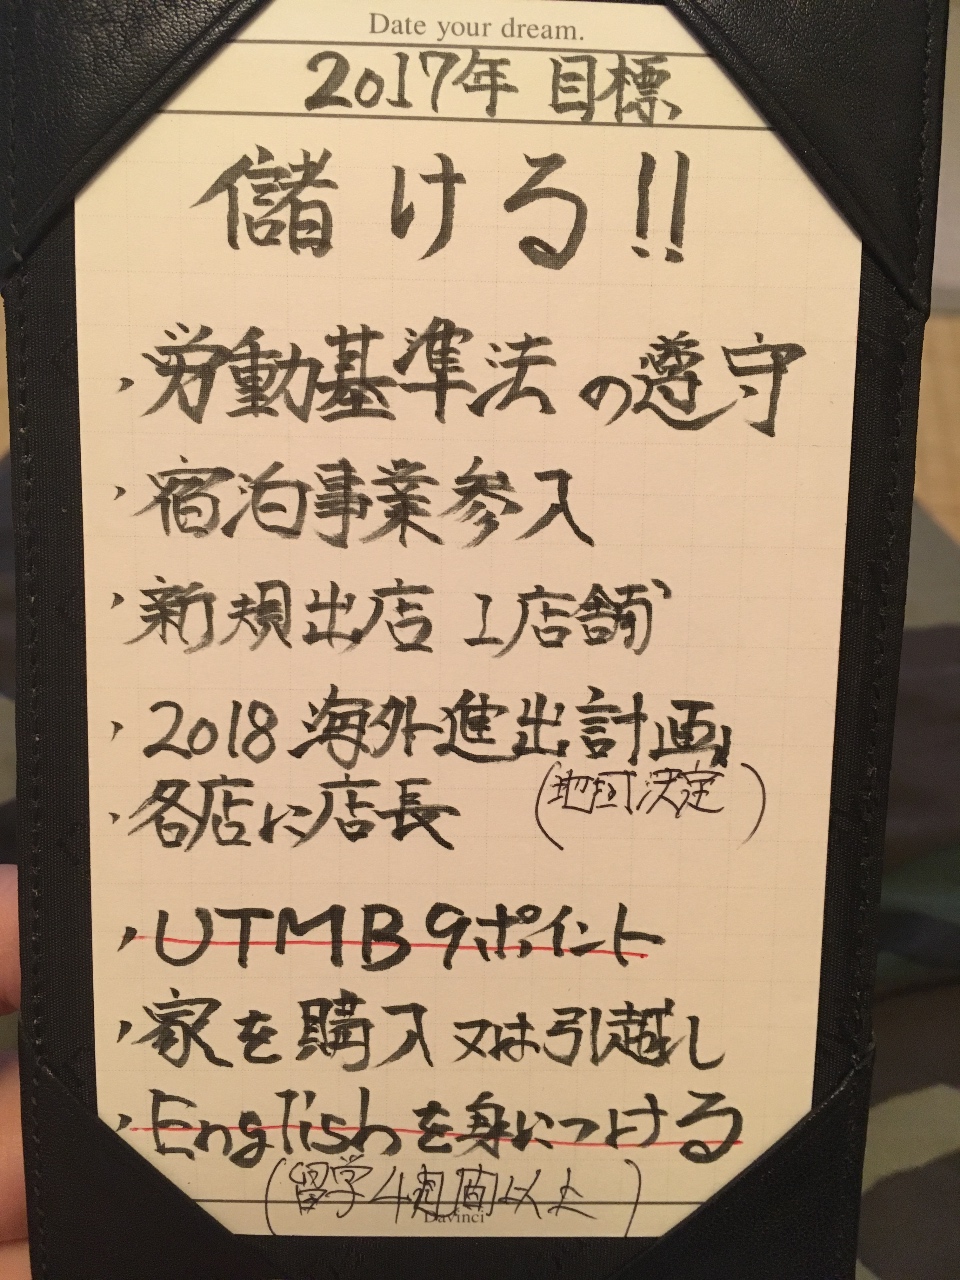 Date your dream.
2017年 目標
儲ける!!
・労動基準法の遵守
・宿泊事業参入
・新規出店 1店舗
・2018海外進出計画
(地域決定)
・各店に店長
・UTMB9ポイント
・家を購入又は引越し
・Englishを身につける
(留学4週間以上)
Davinci